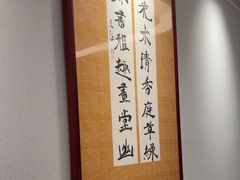 花木清香庭草綠
書雅趣畫堂幽